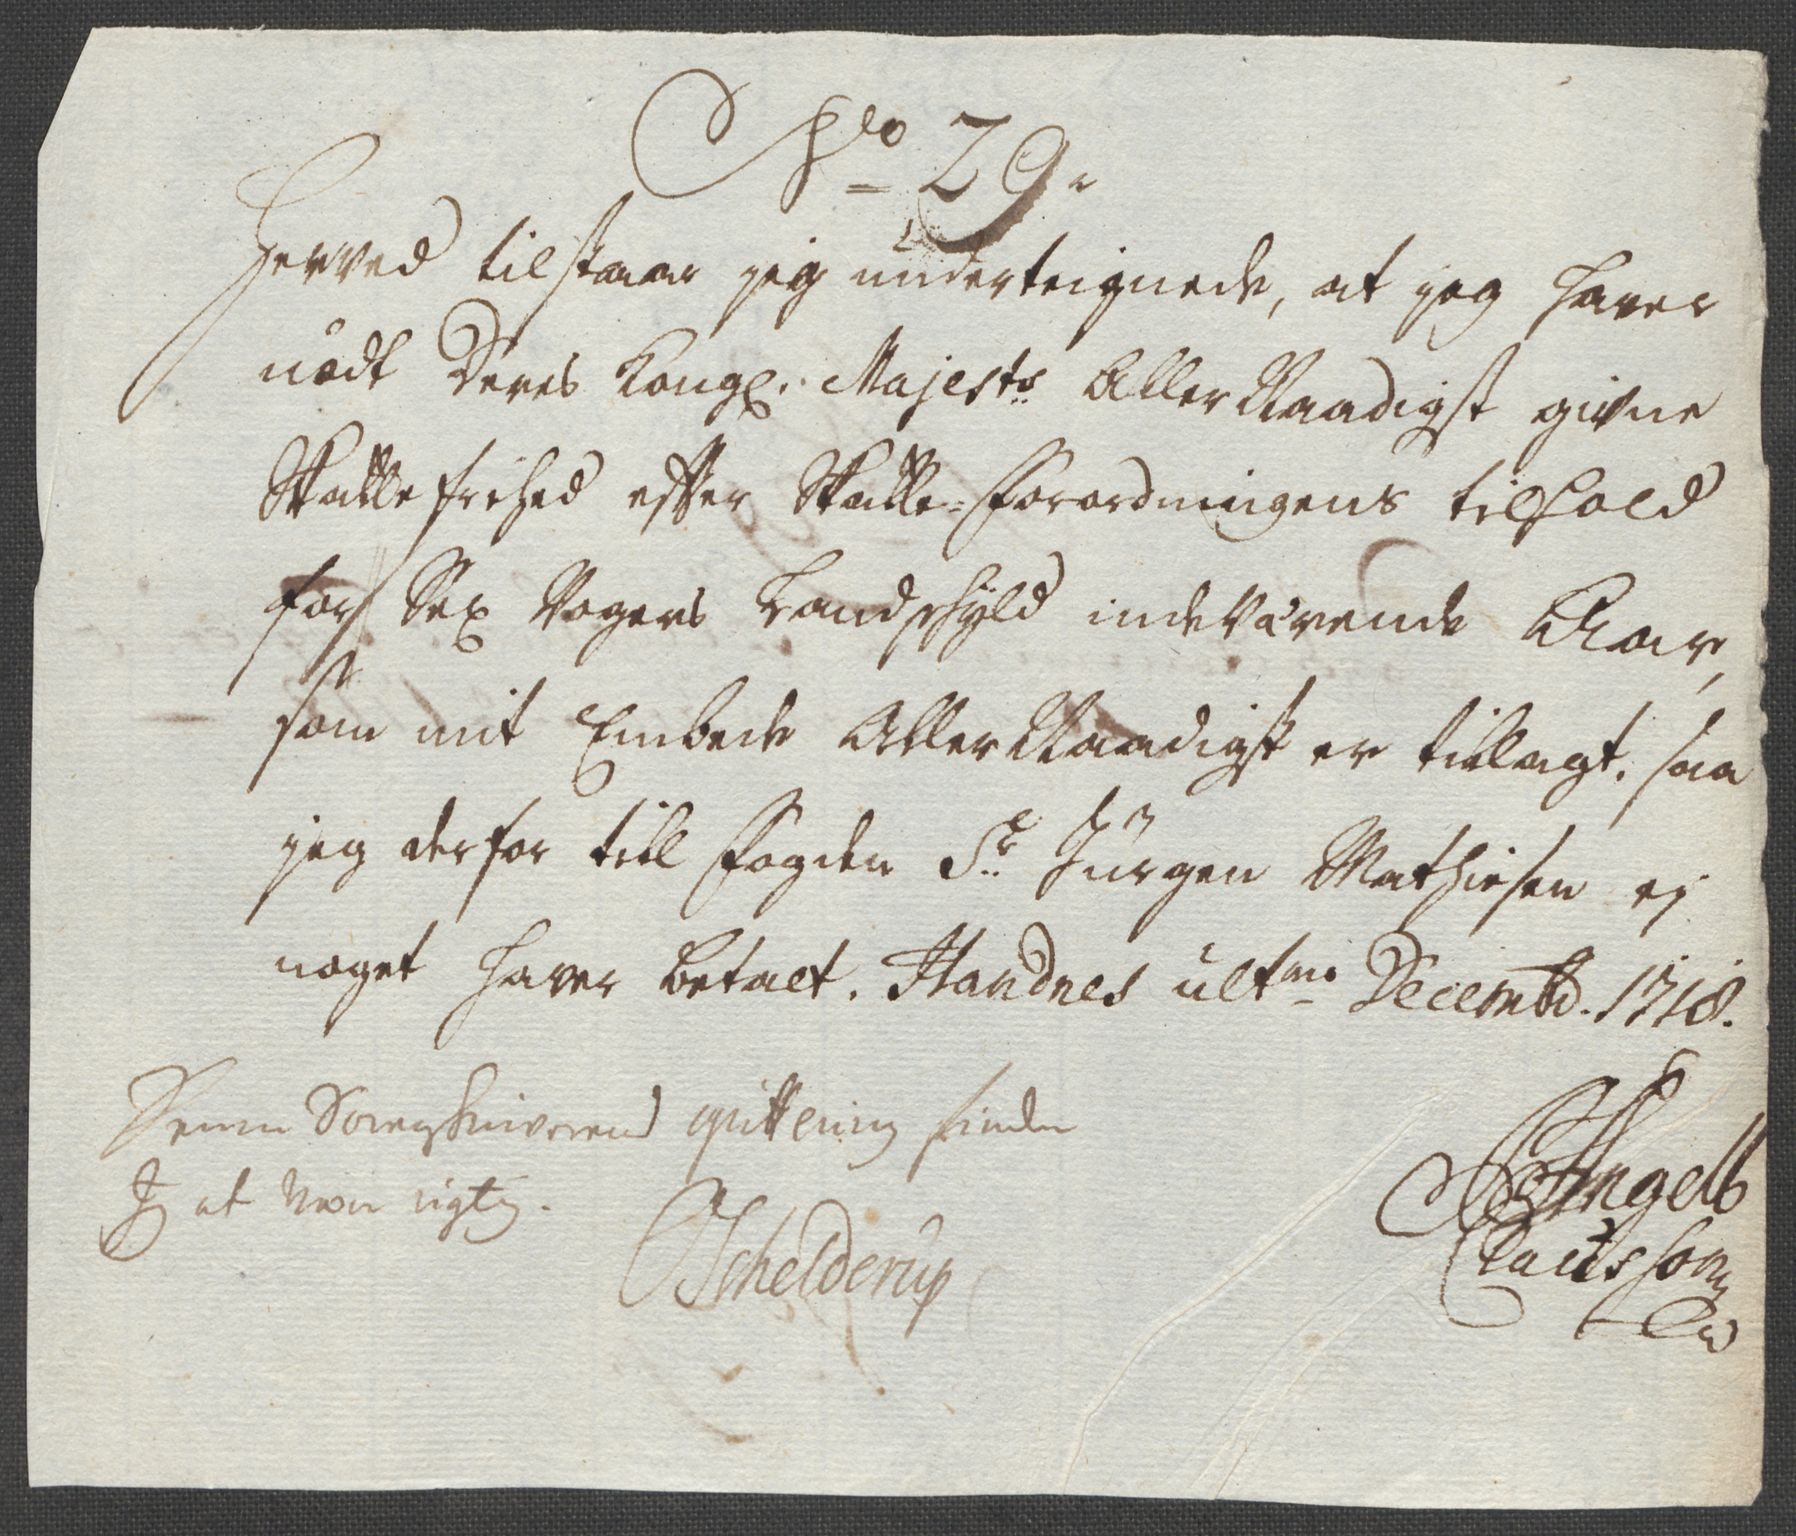 No 29.
Herved tilstaar jeg underteignede, at jeg haver
nødt Deres Kongl. Majests AllerNaadigst givne
Skattefrihed efter Skatte-Forordningens tilhold
for Sex Vogers Landschyld indeværende Aar,
som mit Embede AllerNaadigst er tillagt, saa
jeg derfor till Fogden Sr. Jürgen Mathiesen ej
noget haver betalt. Handnes ultmo Decembr. 1718.
Denne Sorenskriverens quittering finder
Jeg at være rigtig.
Angell
Schelderup
Clausson